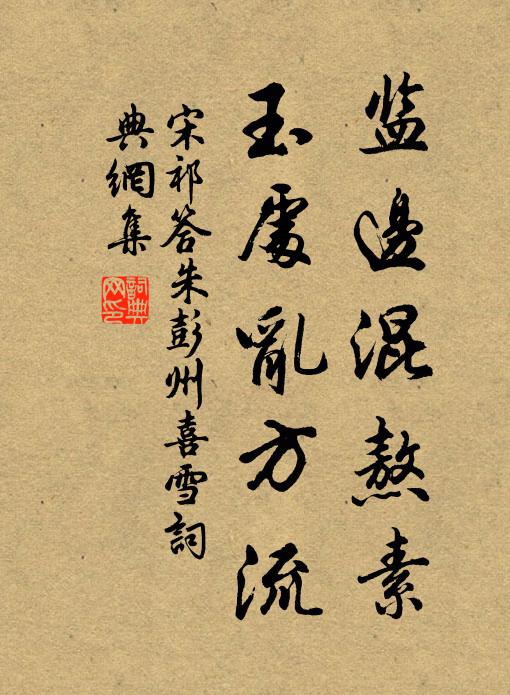 监邊混熬素
玉處亂方流
宋祁答朱彭州喜雪詞
典網集
詞典
网印